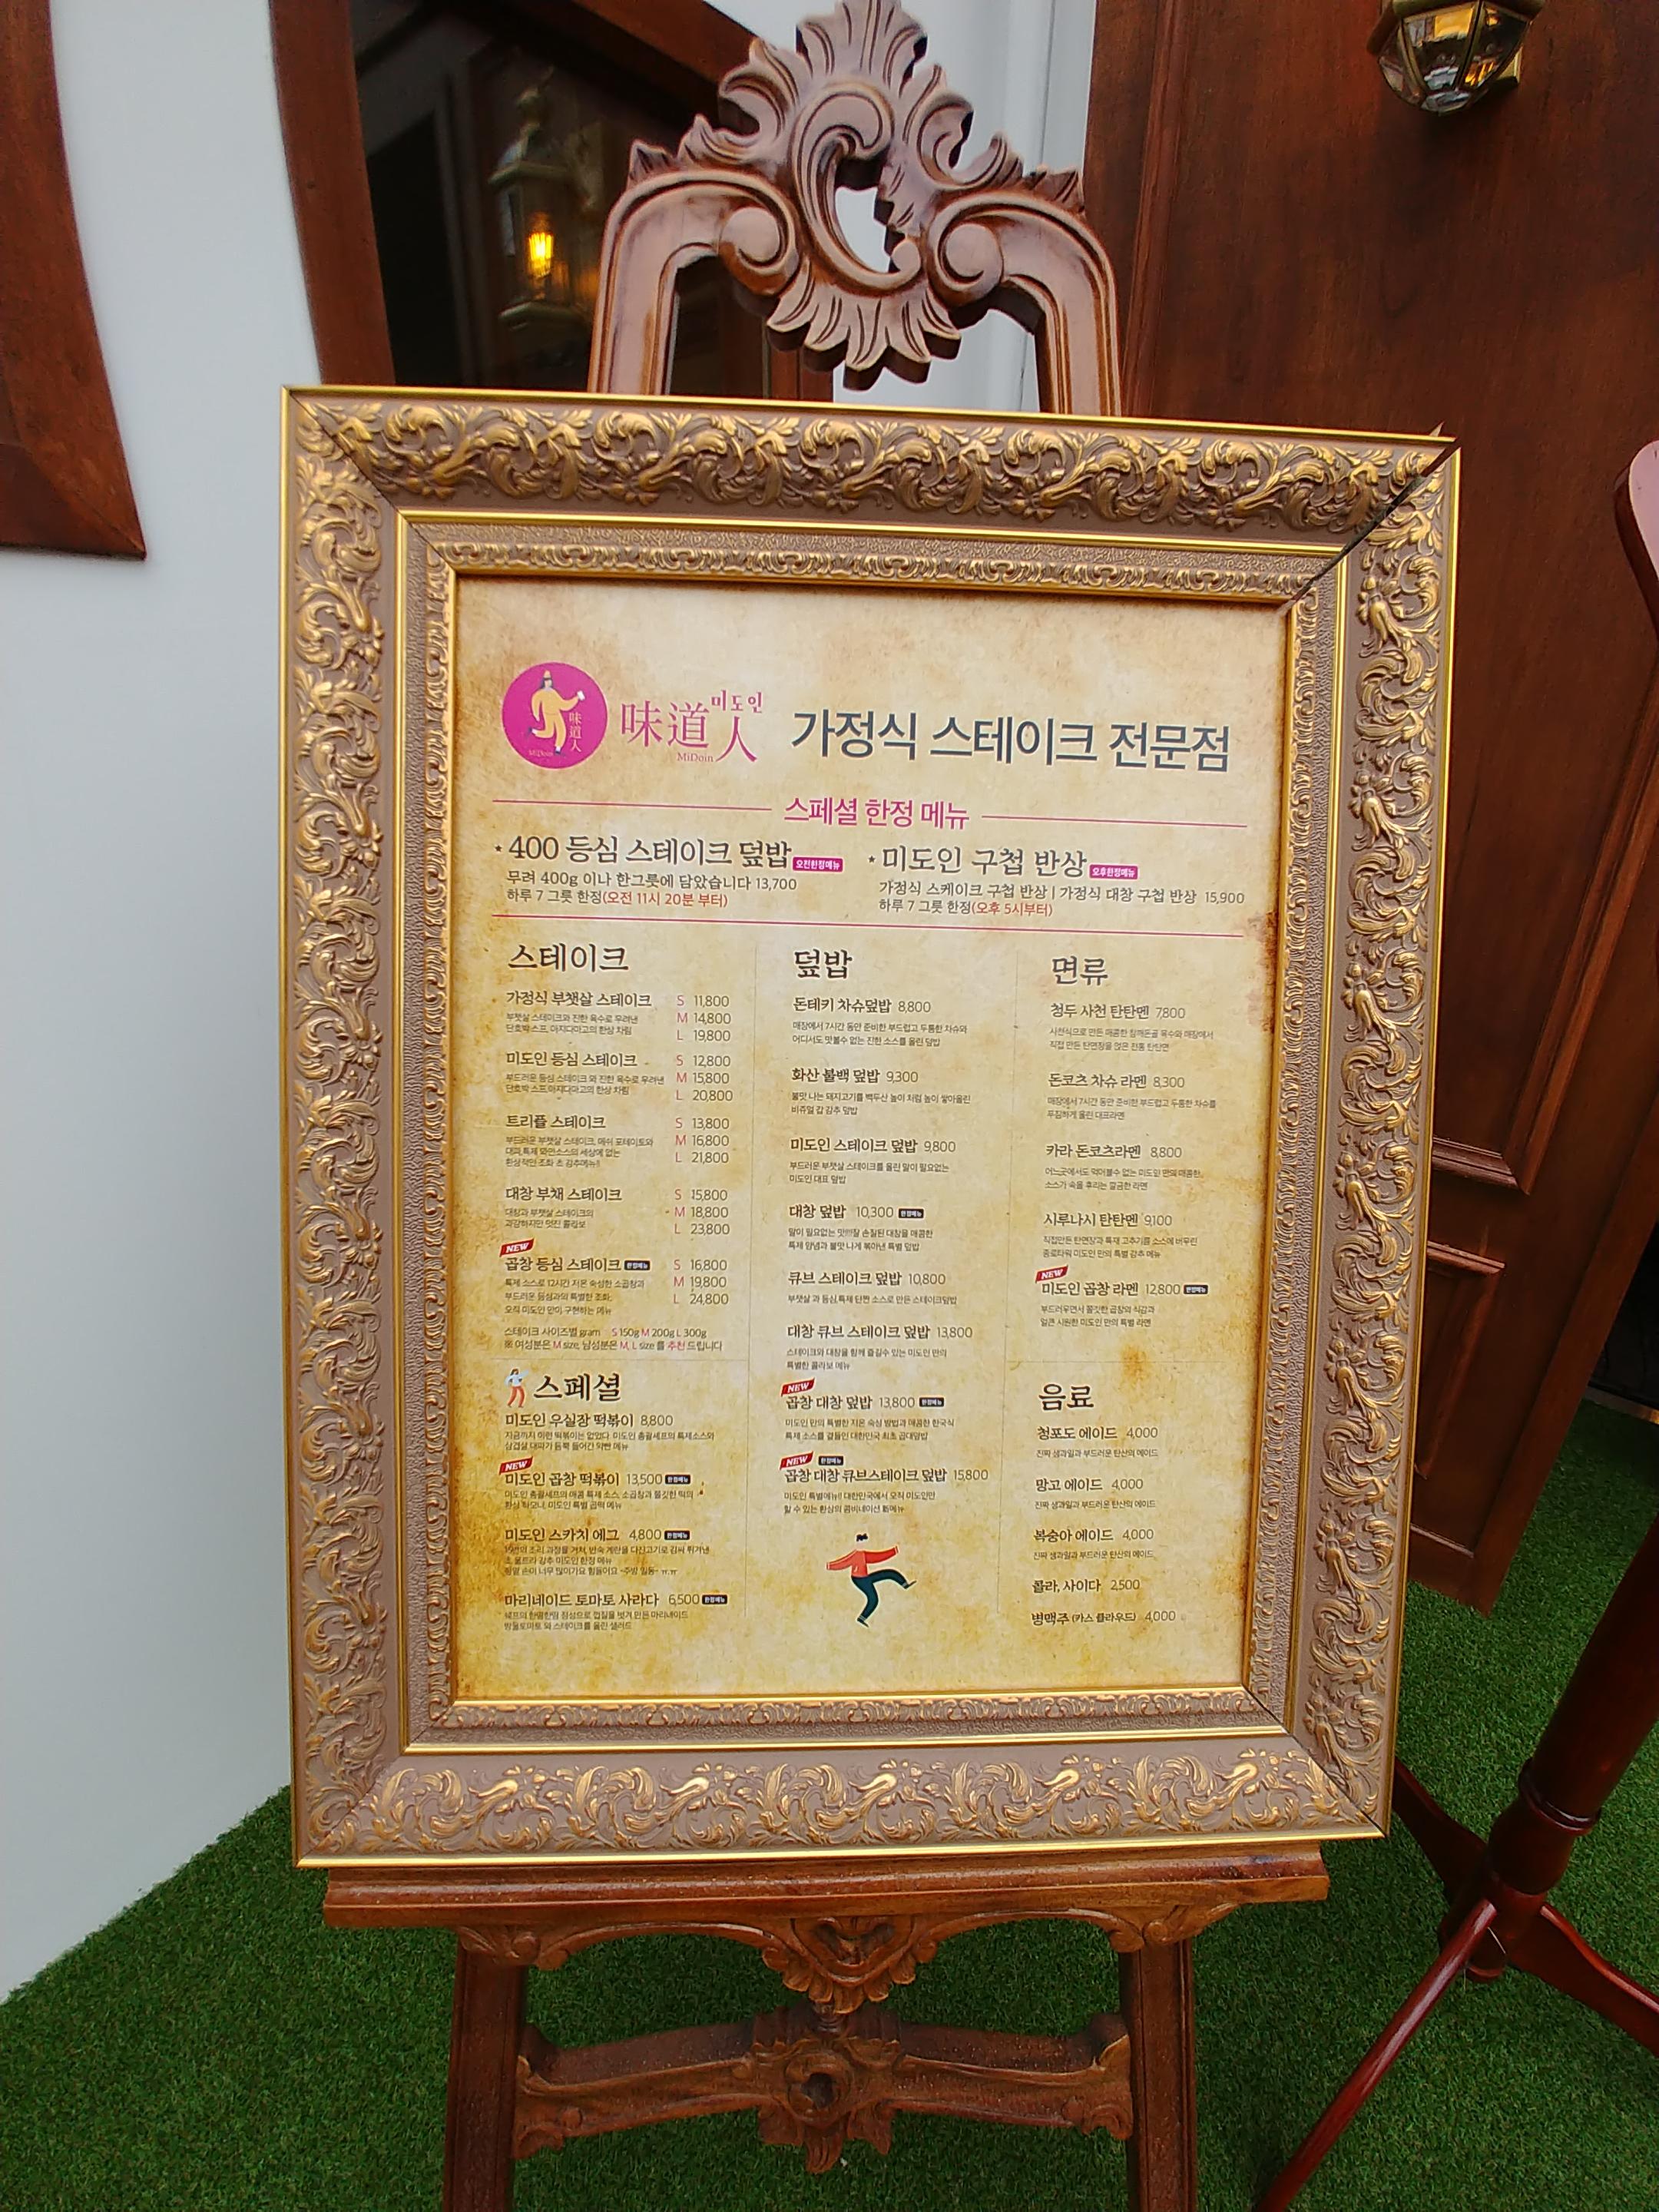 味道人
MiDoin
味道人
미도인
MiDoin
가정식 스테이크 전문점
스페셜 한정 메뉴
* 400 등심 스테이크 덮밥 오전한정메뉴
무려 400g 이나 한그릇에 담았습니다 13,700
하루 7 그릇 한정(오전 11시 20분 부터)
* 미도인 구첩 반상 오후한정메뉴
가정식 스케이크 구첩 반상 | 가정식 대창 구첩 반상 15,900
하루 7 그릇 한정(오후 5시부터)
스테이크
가정식 부챗살 스테이크 S 11,800
부챗살 스테이크와 진한 육수로 우려낸 M 14,800
단호박 스프, 마지다마고의 한상 차림 L 19,800
미도인 등심 스테이크 S 12,800
부드러운 등심 스테이크 와 진한 육수로 우려낸 M 15,800
단호박 스프,마지다마고의 한상 차림 L 20,800
트리플 스테이크 S 13,800
부드러운 부챗살 스테이크, 매쉬 포테이토와 M 16,800
대파,특제 와면소스의 세상에 없는 L 21,800
환상적인 조화 초 강추메뉴!!
대창 부채 스테이크 S 15,800
대창과 부챗살 스테이크의 M 18,800
과감하지만 멋진 콜라보 L 23,800
NEW
곱창 등심 스테이크 한정메뉴 S 16,800
특제 소스로 12시간 저온 숙성한 소곱창과 M 19,800
부드러운 등심과의 특별한 조화, L 24,800
오직 미도인 만이 구현하는 메뉴
스테이크 사이즈별 gram S 150g M 200g L 300g
※ 여성분은 M size, 남성분은 M, L size 를 추천 드립니다
스페셜
미도인 우실장 떡볶이 8,800
지금까지 이런 떡볶이는 없었다. 미도인 총괄셰프의 특제소스와
삼겹살 대파가 듬뿍 들어간 약빤 메뉴
NEW
미도인 곱창 떡볶이 13,500 한정메뉴
미도인 총괄셰프의 매콤 특제 소스, 소곱창과 쫄깃한 떡의
환상 하모니, 미도인 특별 곱떡 메뉴
미도인 스카치 에그 4,800 한정메뉴
조리 과정을 거쳐, 반숙 계란을 다진고기로 감싸 튀겨낸
초 울트라 강추 미도인 한정 메뉴
손이 너무 많이가요 힘들어요 -주방 일동- ㅠㅠ
마리네이드 토마토 사라다 6,500 한정메뉴
셰프의 한땀한땀 정성으로 껍질을 벗겨 만든 마리네이드
방울토마토 와 스테이크를 올린 샐러드
덮밥
돈테키 차슈덮밥 8,800
매장에서 7시간 동안 준비한 부드럽고 두툼한 차슈와
어디서도 맛볼수 없는 진한 소스를 올린 덮밥
화산 불백 덮밥 9,300
불맛 나는 돼지고기를 백두산 높이 처럼 높이 쌓아올린
비쥬얼 갑 강추 덮밥
미도인 스테이크 덮밥 9,800
부드러운 부챗살 스테이크를 올린 말이 필요없는
미도인 대표 덮밥
대창 덮밥 10,300 한정메뉴
말이 필요없는 맛!!!!잘 손질된 대창을 매콤한
특제 양념과 불맛 나게 볶아낸 특별 덮밥
큐브 스테이크 덮밥 10,800
부챗살 과 등심,특제 단짠 소스로 만든 스테이크덮밥
대창 큐브 스테이크 덮밥 13,800
스테이크와 대창을 함께 즐길수 있는 미도인 만의
특별한 콜라보 메뉴
NEW
곱창 대창 덮밥 13,800 한정메뉴
미도인 만의 특별한 저온 숙성 방법과 매콤한 한국식
특제 소스를 곁들인 대한민국 최초 곱대덮밥
NEW 한정메뉴
곱창 대창 큐브스테이크 덮밥 15,800
미도인 특별메뉴!! 대한민국에서 오직 미도인만
할 수 있는 환상의 콤비네이션 메뉴
면류
청두 사천 탄탄멘 7,800
사천식으로 만든 매콤한 참깨돈골 육수와 매장에서
직접 만든 탄면장을 얹은 전통 탄탄면
돈코츠 차슈 라멘 8,300
매장에서 7시간 동안 준비한 부드럽고 두툼한 차슈를
푸짐하게 올린 대표라멘
카라 돈코츠라멘 8,800
어느곳에서도 먹어볼수 없는 미도인 만의 매콤한,
소스가 속을 후리는 깔끔한 라멘
시루나시 탄탄멘 9,100
직접만든 탄면장과 특재 고추기름 소스에 버무린
종로타워 미도인 만의 특별 강추 메뉴
NEW
미도인 곱창 라멘 12,800 한정메뉴
부드러우면서 쫄깃한 곱창의 식감과
얼큰 시원한 미도인 만의 특별 라멘
음료
청포도 에이드 4,000
진짜 생과일과 부드러운 탄산의 에이드
망고 에이드 4,000
진짜 생과일과 부드러운 탄산의 에이드
복숭아 에이드 4,000
진짜 생과일과 부드러운 탄산의 에이드
콜라, 사이다 2,500
병맥주 (카스 클라우드) 4,000